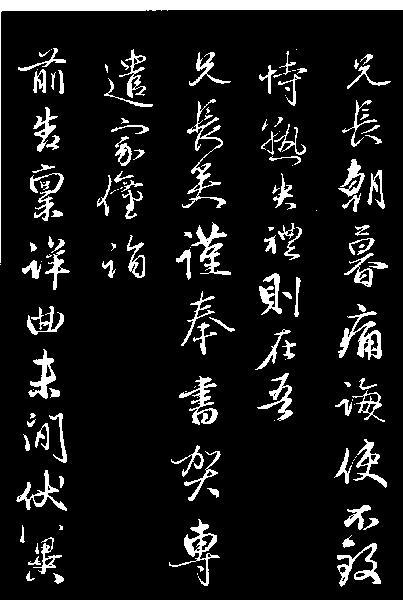 兄長朝暮痛誨使不致
恃熟失禮則在吾
兄長矣謹奉書賀專
遣家僮詣
前告稟详曲未閒伏冀